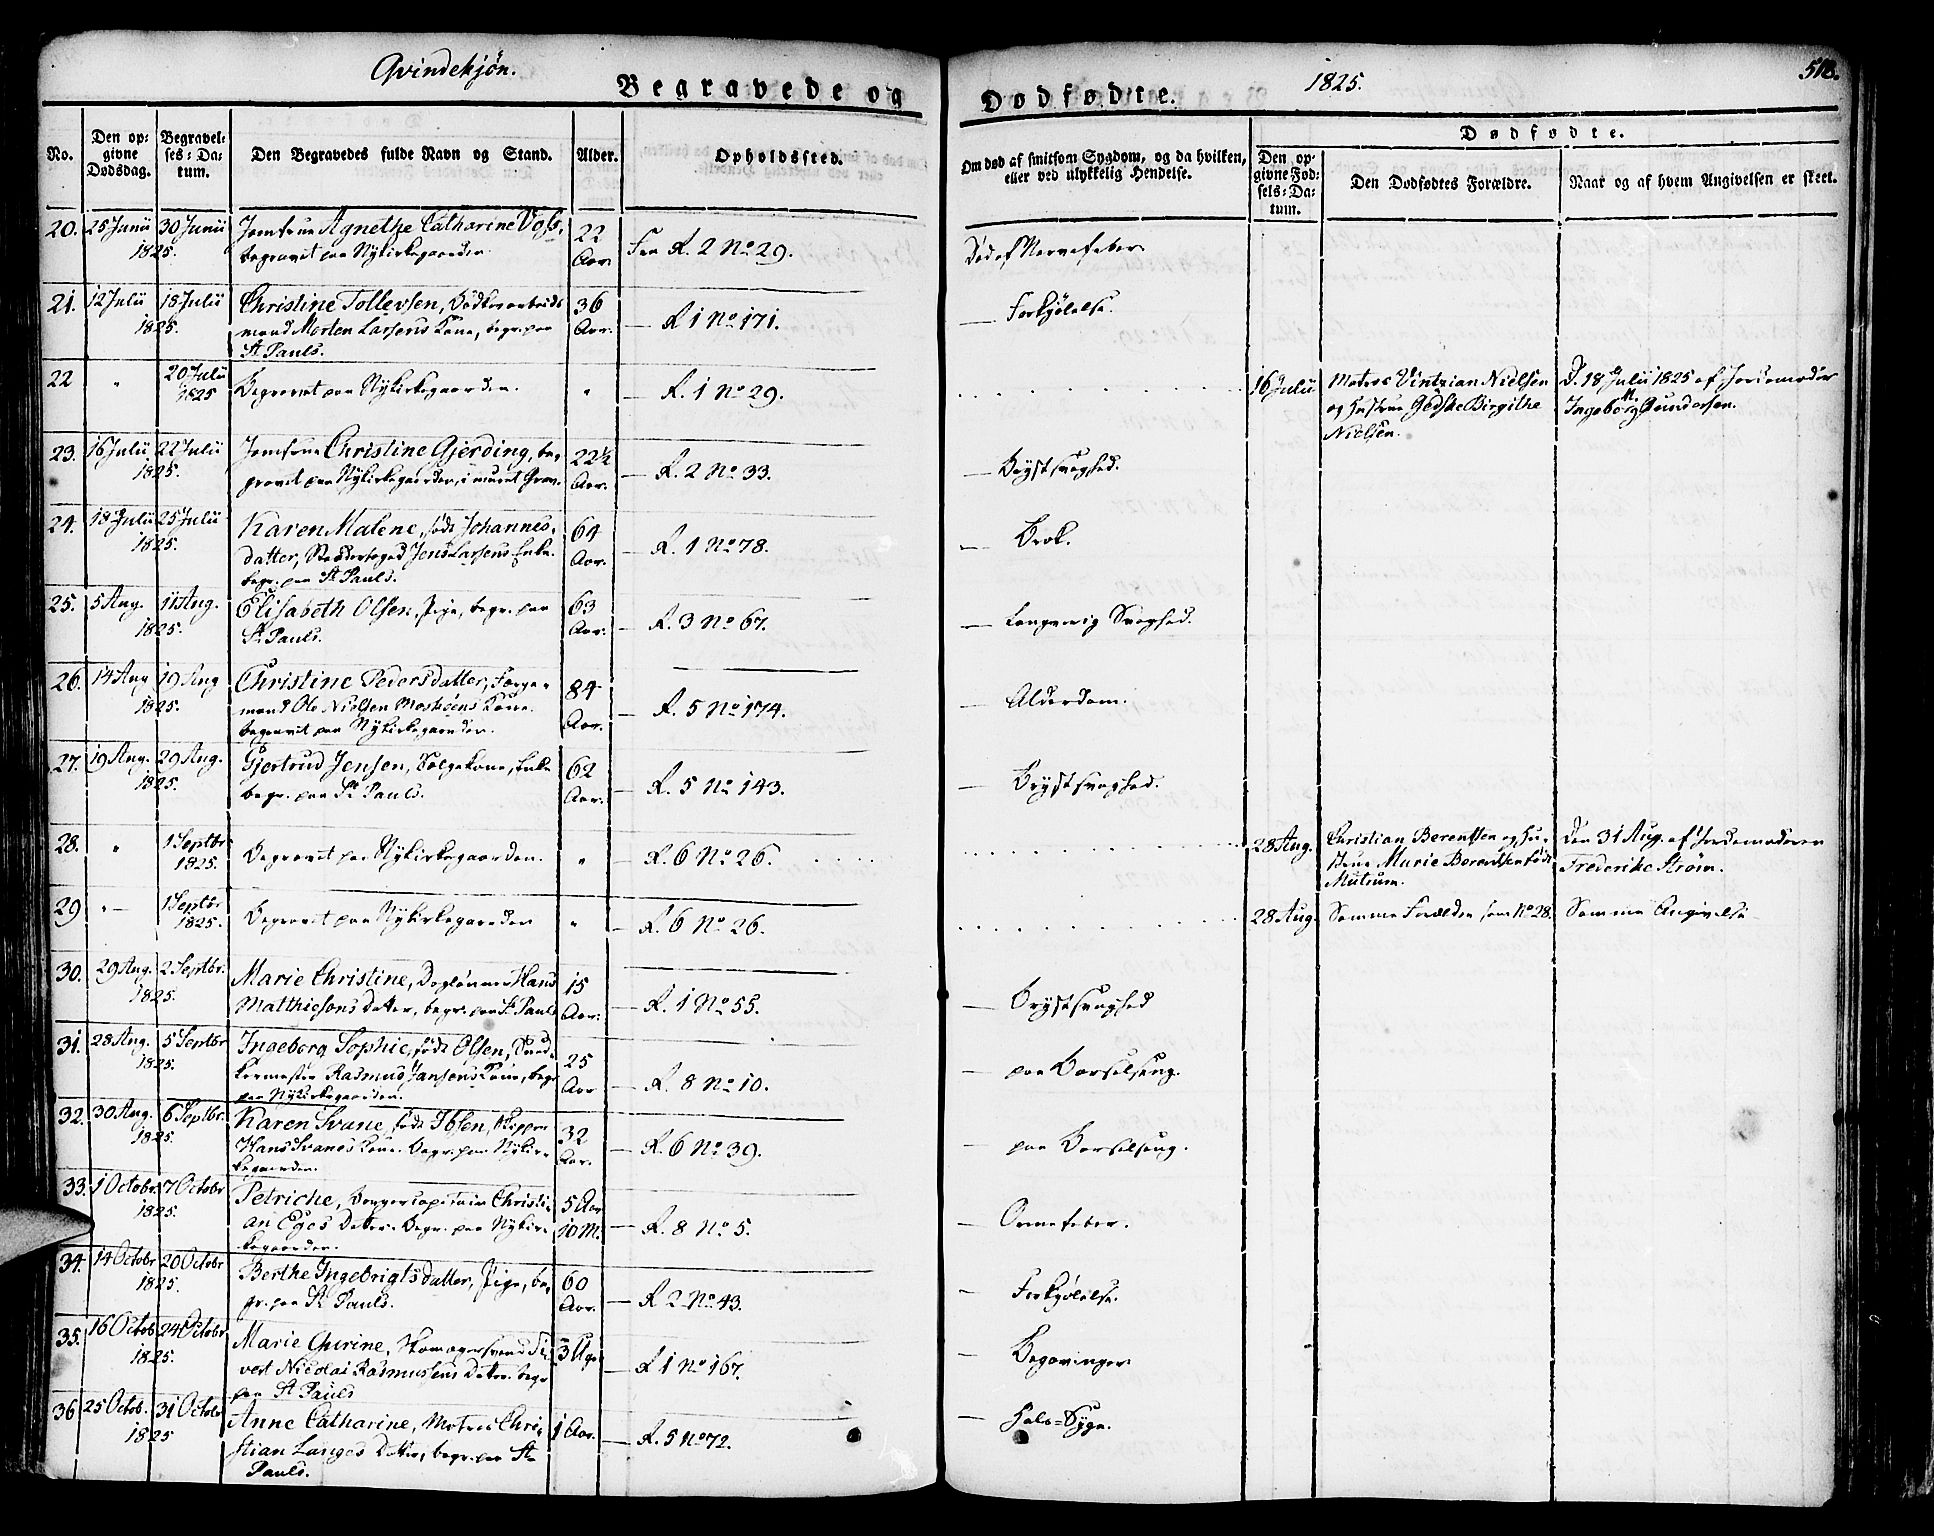 Qvindekjøn.
Begravede og Dødfødte.
1825.
518.
No.
Den opgivne Dødsdag.
Begravelses-Datum.
Den Begravedes fulde Navn og Stand.
Alder.
Opholdssted.
Om død af smitsom Sygdom, og da hvilken, eller ved ulykkelig Hendelse.
Dødfødte.
Den opgivne Fødsels-Datum.
Den Dødfødtes Forældre.
Naar og af hvem Angivelsen er skeet.
20. 25 Junii 30 Junii Jomfrue Agnethe Catharine Vogt, 22
1825. begravet paa Nykirkegaarden Aar. R. 2 No 29. Død af Nervefeber
21. 12 Julii 18 Julii Christine Tollevsen, Bødkerarbeids 36
1825. mand Morten Larsens Kone, begr. paa Aar. — R 1 No 171. — Forkjølelse.
St Pauls.
22 " 20 Julii 1825 Begravet paa Nykirkegaarden. " — R. 1 No 29. 16 Julii Matros Vintzian Nielsen D. 18 Julii 1825 af Jordemoder
og Hustrue Gødske Birgithe Ingeborg M. Gundersen.
Nielsen.
23. 16 Julii 22 Julii Jomfrue Christine Gjerding, be- 22½
1825. gravet paa Nykirkegaarden, i muret Grav. Aar. — R. 2 No 33. — Brystsvaghed.
24. 18 Julii 25 Julii Karen Malene, født Johannes- 64
1825. datter, Jens Larsens Enke. Aar. — R. 1 No 78. — Brok.
begr. paa St Pauls.
25. 5 Aug. 11 Aug. Elisabeth Olsen, Pige, begr. paa 63
1825. St Pauls. Aar. — R. 3 No 67. — Langvarig Svaghed.
26. 14 Aug 19 Aug Christine Pedersdatter, Færge- 84
1825. mand Ole Nielsen Kone. Aar. — R. 5 No 174. — Alderdom.
begravet paa Nykirkegaarden.
27. 19 Aug. 29 Aug. Gjertrud Jensen, Sælgekone, Enke 62
1825. begr. paa St Pauls. Aar. — R. 5 No 143. — Brystsvaghed.
28. " 1 Septbr 1825. Begravet paa Nykirkegaarden. " — R. 6 No 26. 28 Aug. Christian Berentsen og Hu- Den 31 Aug. af Jordemoderen
strue Marie Berentsen født Frederike Strøm.
Mutrum.
29 " 1 Septbr 1825. Begravet paa Nykirkegaarden " — R. 6 No 26. 28 Aug Samme Forældre som No 28. Samme Angivelse
30. 29 Aug. 2 Septbr. Marie Christine, Daglønner Hans 15
1825. Matthiesens Datter, begr. paa St Pauls Aar. — R. 1 No 55. — Brystsvaghed
31. 28 Aug. 5 Septbr Ingeborg Sophie, født Olsen, Sned- 25
1825. kermester Rasmus Jansens Kone, begr Aar — R. 8 No 10. — paa Barselseng.
paa Nykirkegaarden.
32. 30 Aug. 6 Septbr. Karen Svane, født Ibsen, Skipper 32
1825. Hans Svanes Kone. Begr. paa Nykir- Aar. — R. 6 No 39. — paa Barselseng.
kegaarden.
33. 1 Octobr. 7 Octobr Petriche, Borgercapitain Christi- 5 Aar
1825. an Eges Datter. Begr. paa Nykir- 10 M. — R. 8 No 5. — Ormefeber.
kegaarden.
34. 14 Octobr 20 Octobr Berthe Ingebrigtsdatter, Pige, be- 60
1825. gr. paa St Pauls. Aar. — R 2 No 43. — Forkjølelse.
35. 16 Octob 24 Octobr Marie Gurine, Skomagersvend Si- 3 Uger
1825. vert Nicolai Rasmussens Datter begr — R 1 No 167. — Begavinger
paa St Pauls
36 25 Octob. 31 Octobr Anne Catharine, Matros Chri- 1 Aar.
1825 stian Langes Datter, begr. paa St — R. 5 No 72. — Hals=Syge.
Pauls.